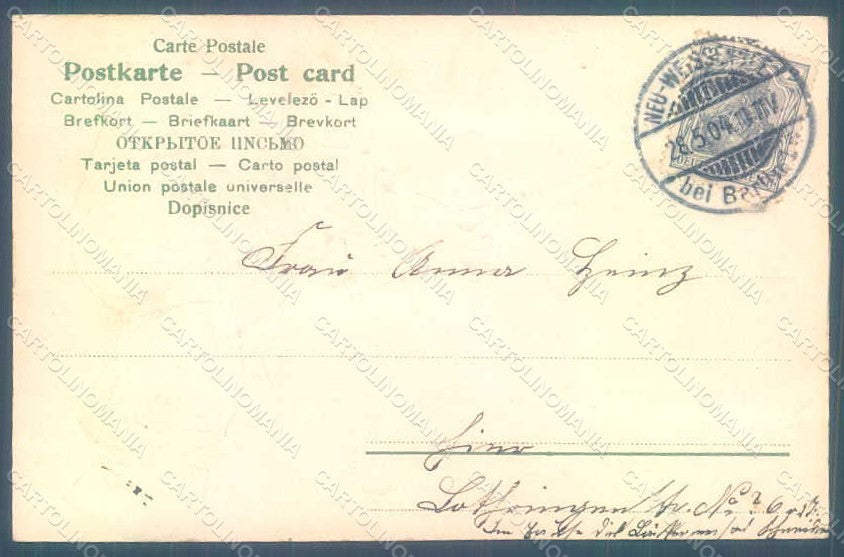 Carte Postale
Postkarte — Post card
Cartolina Postale — Levelező - Lap
Brefkort — Briefkaart — Brevkort
ОТКРЫТОЕ ПИСЬМО
Tarjeta postal — Carto postal
Union postale universelle
Dopisnice
NEU-WEISSENSEE
28.5.04.
bei Berlin
Frau Anna Heinz
Hier
Lothringen str. No
CARTOLINOMANIA